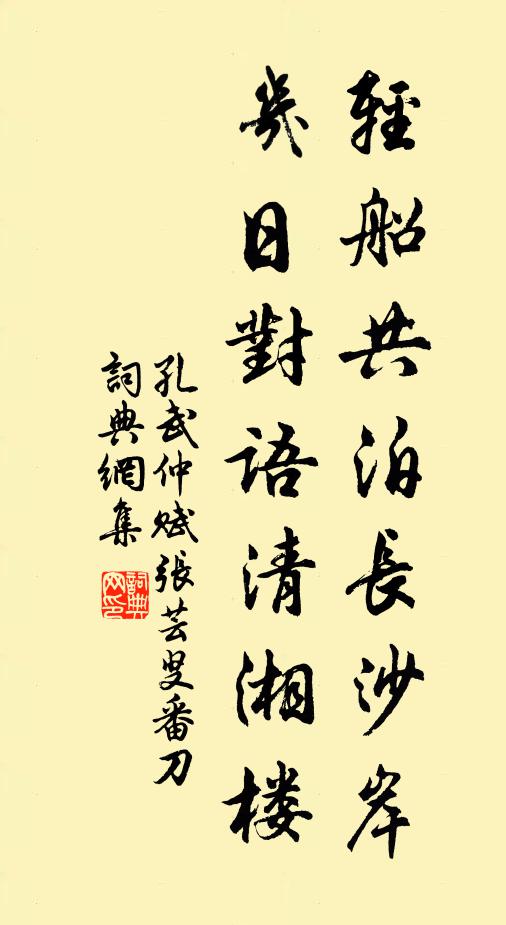 輕船共泊長沙岸
幾日對語清湘楼
孔武仲賦張芸叟番刀
詞典網集
詞典网印